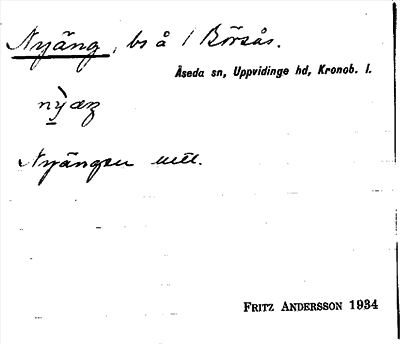 Nyäng, bs å 1 Börsås.
Åseda sn, Uppvidinge hd, Kronob. l.
Nyängen utt.
FRITZ ANDERSSON 1934